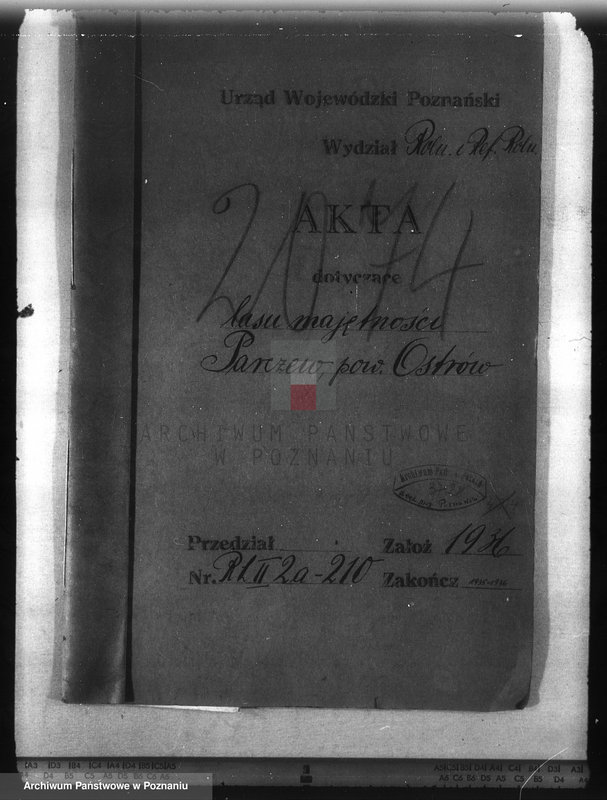 Urząd Wojewódzki Poznański
Wydział Roln. i Ref. Roln.
2074
AKTA
dotyczące
lasu majętności
Parczew, pow. Ostrów
ARCHIWUM PAŃSTWOWE
W POZNANIU
Przedział Założ 1936
Nr. RL II 2a-210 Zakończ
Archiwum Państwowe w Poznaniu